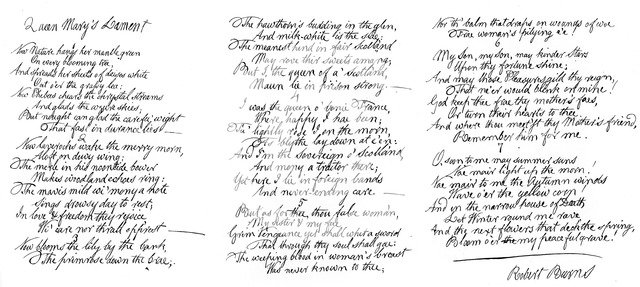 Queen Mary's Lament
Now Nature hangs her mantle green
On every blooming tree,
And spreads her sheets o' daisies white
Out o'er the grassy lea:
Now Phebus chears the chrystal streams
And glads the azure skies;
But nought can glad the carefu' wight
That fast in durance lies —
Now laverocks wake the merry morn,
Aloft on dewy wing;
The merle in his noontide bower
Makes woodland echoes ring:
The mavis mild wi' mony a note
Sings drowsy day to rest;
In love & freedom they rejoice
Wi' care nor thrall opprest —
Now blooms the lily by the bank,
The primrose down the brae;
The hawthorn's budding in the glen,
And milk-white is the slae;
The meanest hind in fair Scotland
May rove their sweets amang,
But I, the queen of a' Scotland,
Maun lie in prison strang. —
I was the queen o' bonie France,
Where happy I hae been;
Fu' lightly rose I in the morn,
As blythe lay down at e'en:
And I'm the sovereign o' Scotland,
And mony a traitor there;
Yet here I lie in foreign bands
And never-ending care. —
5
But as for thee, thou false woman,
My sister & my fae
Grim Vengeance yet shall whet a sword
That through thy soul shall gae:
The weeping blood in woman's breast
Was never known to thee;
Nor th' balm that draps on wounds of woe
Frae woman's pitying e'e!
6
My Son, my Son, may kinder Stars
Upon thy fortune shine;
And may those Pleasures gild thy reign,
That ne'er would blink on mine!
God keep thee frae thy mother's faes,
Or turn their hearts to thee:
And where thou meet'st thy Mother's friend,
Remember him for me.
7
O, soon to me may summer suns
Nae mair light up the morn!
Nae mair to me the Autumn winds
Wave o'er the yellow corn!
And in the narrow house of Death
Let Winter round me rave
And thy next flowers that deck the spring,
Bloom o'er the my peaceful grave.
Robert Burns